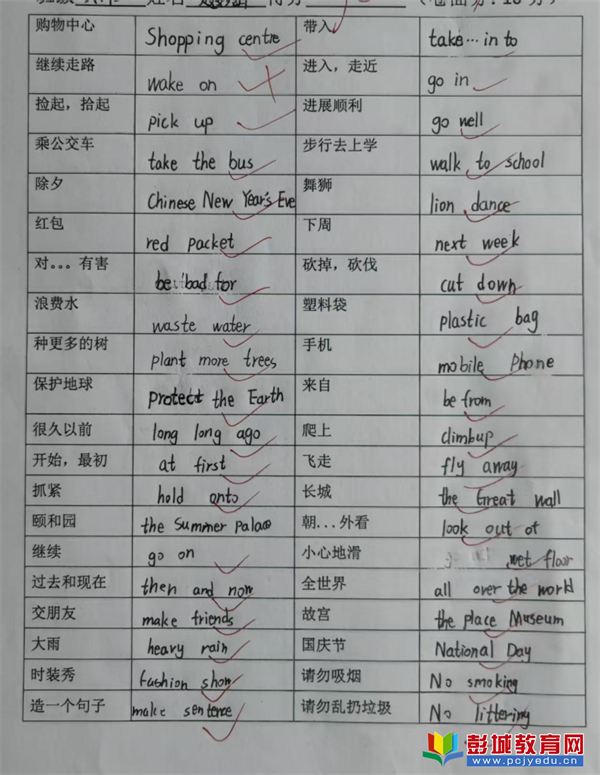 购物中心 Shopping centre 带入 take…in to
继续走路 wake on 进入，走近 go in
捡起，拾起 pick up 进展顺利 go well
乘公交车 take the bus 步行去上学 walk to school
除夕 Chinese New Year's Eve 舞狮 lion dance
红包 red packet 下周 next week
对。。。有害 be bad for 砍掉，砍伐 cut down
浪费水 waste water 塑料袋 plastic bag
种更多的树 plant more trees 手机 mobile phone
保护地球 protect the Earth 来自 be from
很久以前 long long ago 爬上 climbup
开始，最初 at first 飞走 fly away
抓紧 hold onto 长城 the Great wall
颐和园 the Summer Palace 朝...外看 look out of
继续 go on 小心地滑 wet floor
过去和现在 then and now 全世界 all over the world
交朋友 make friends 故宫 the place Museum
大雨 heavy rain 国庆节 National Day
时装秀 fashion show 请勿吸烟 No smoking
造一个句子 make sentence 请勿乱扔垃圾 No littering
彭城教育网
www.pcjyedu.cn